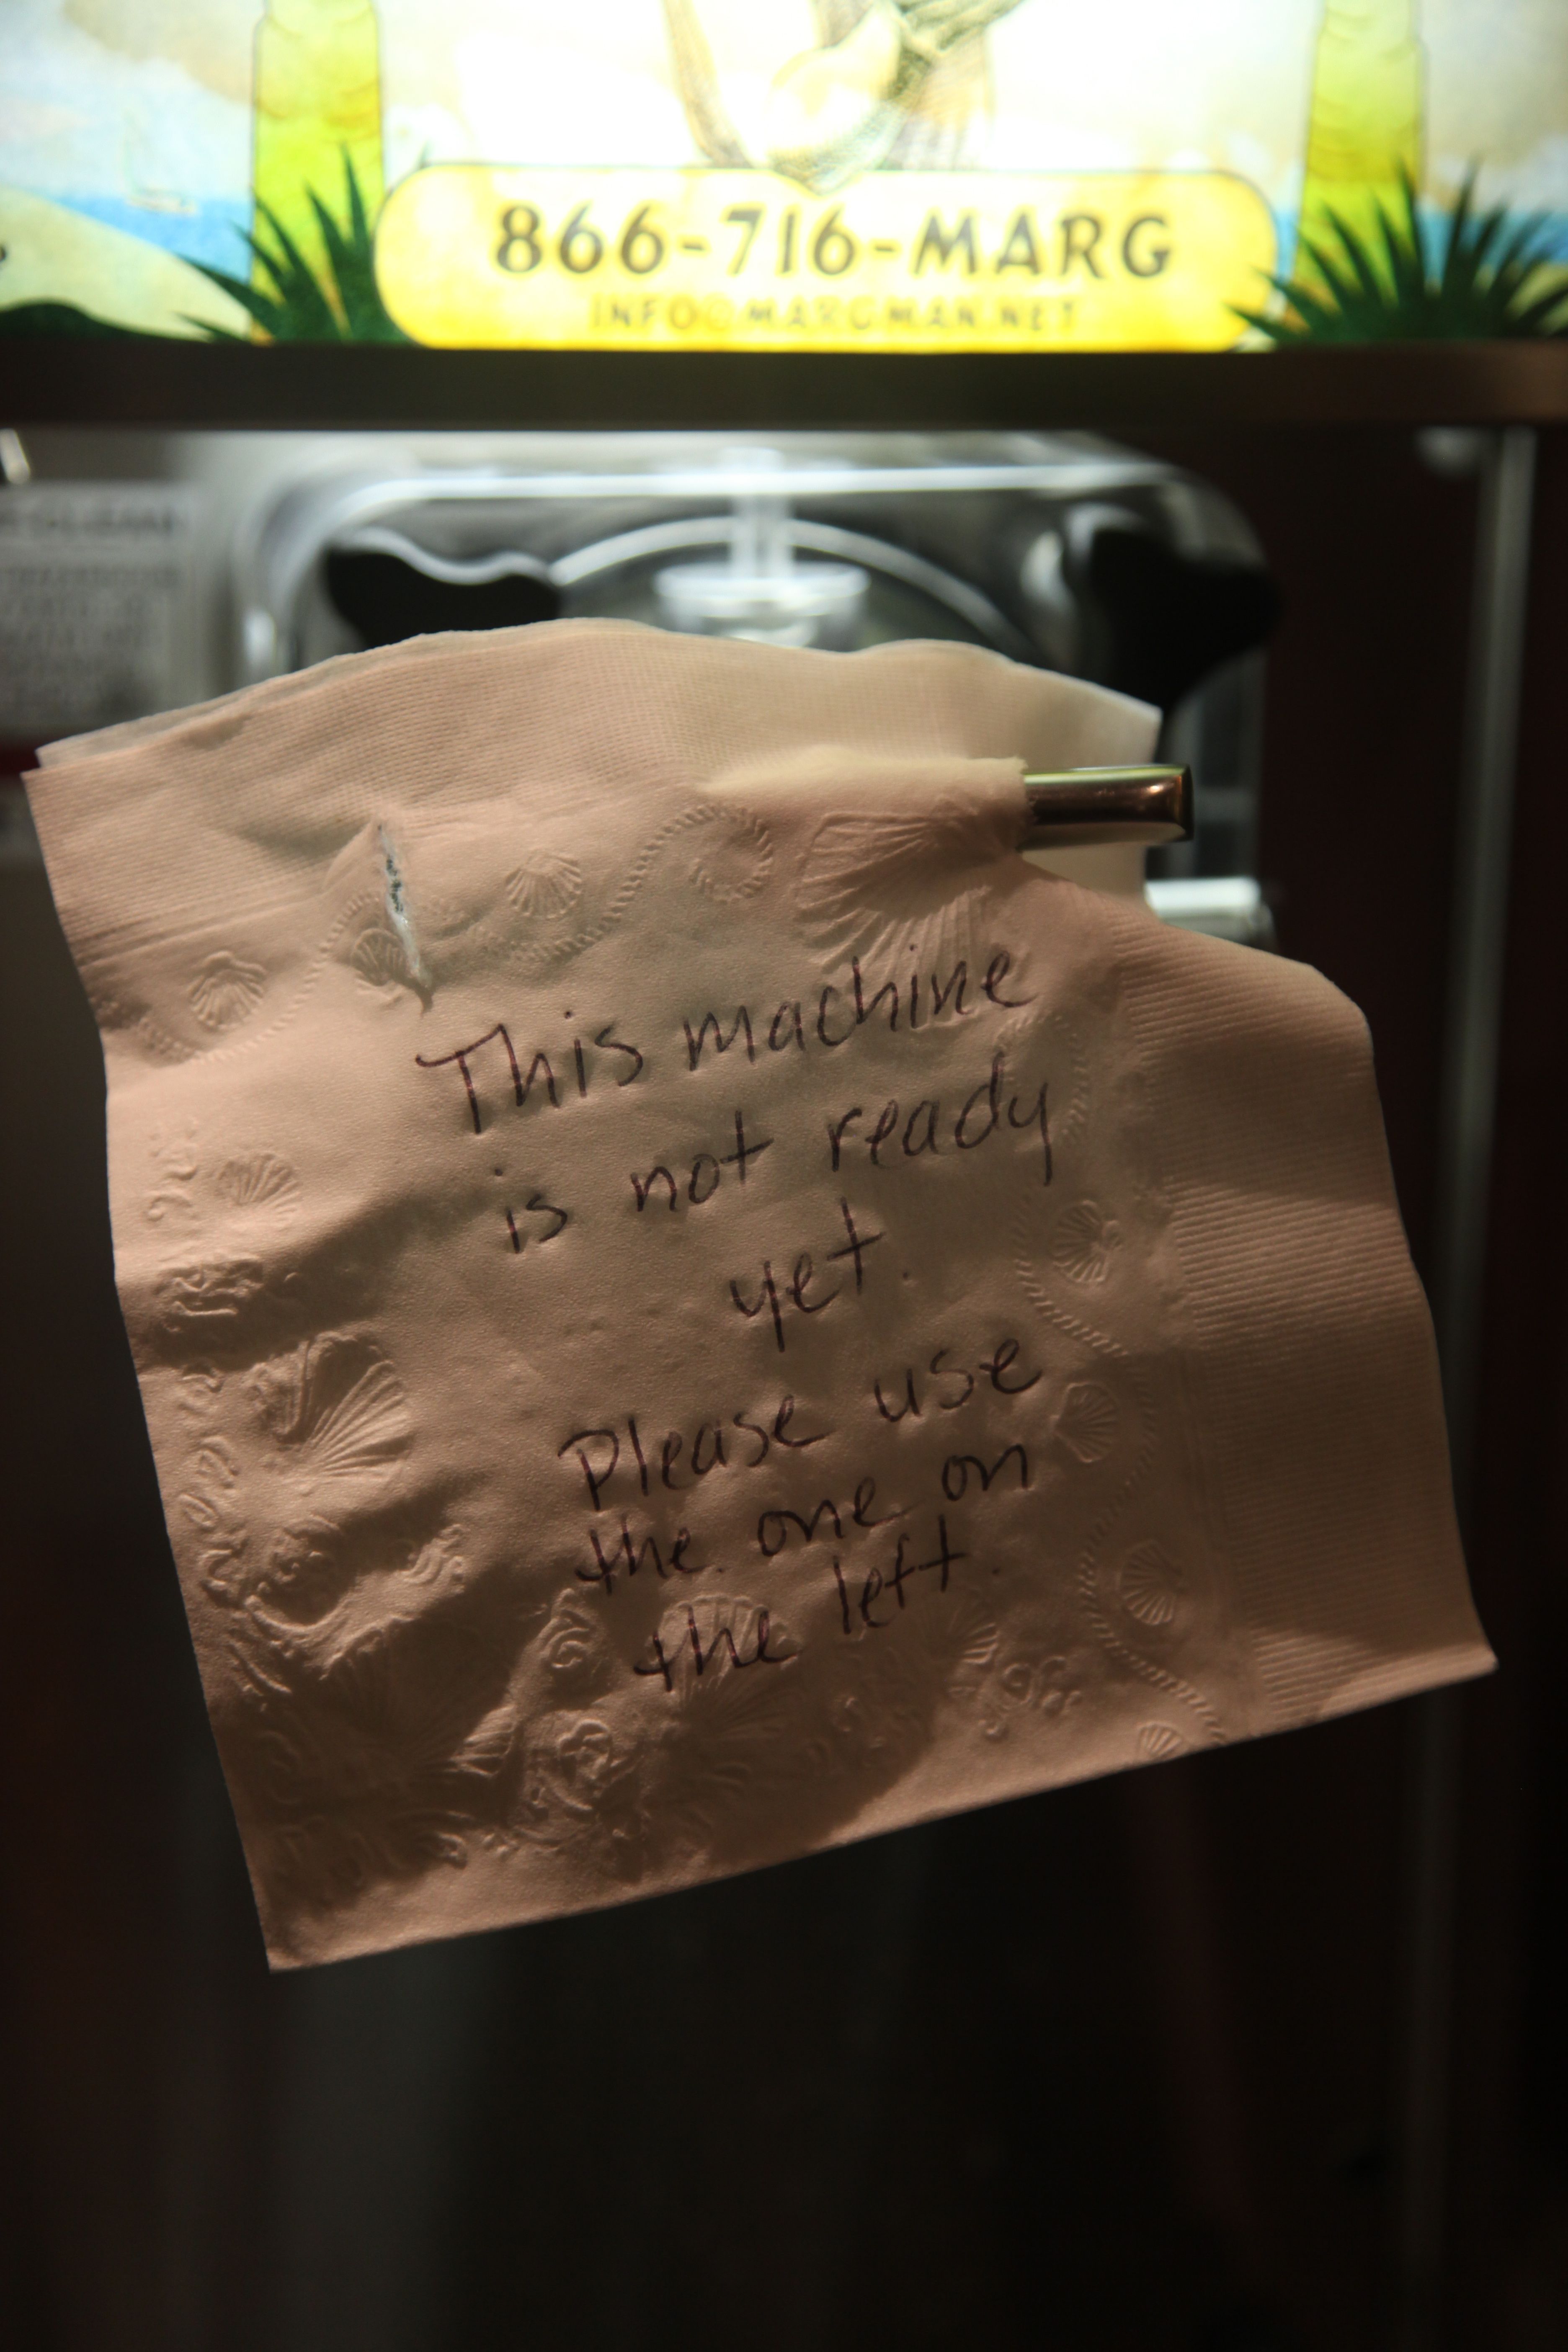 866-716-MARG
INFO@MARGMAN.NET
This machine
is not ready
yet.
Please use
the one on
the left.